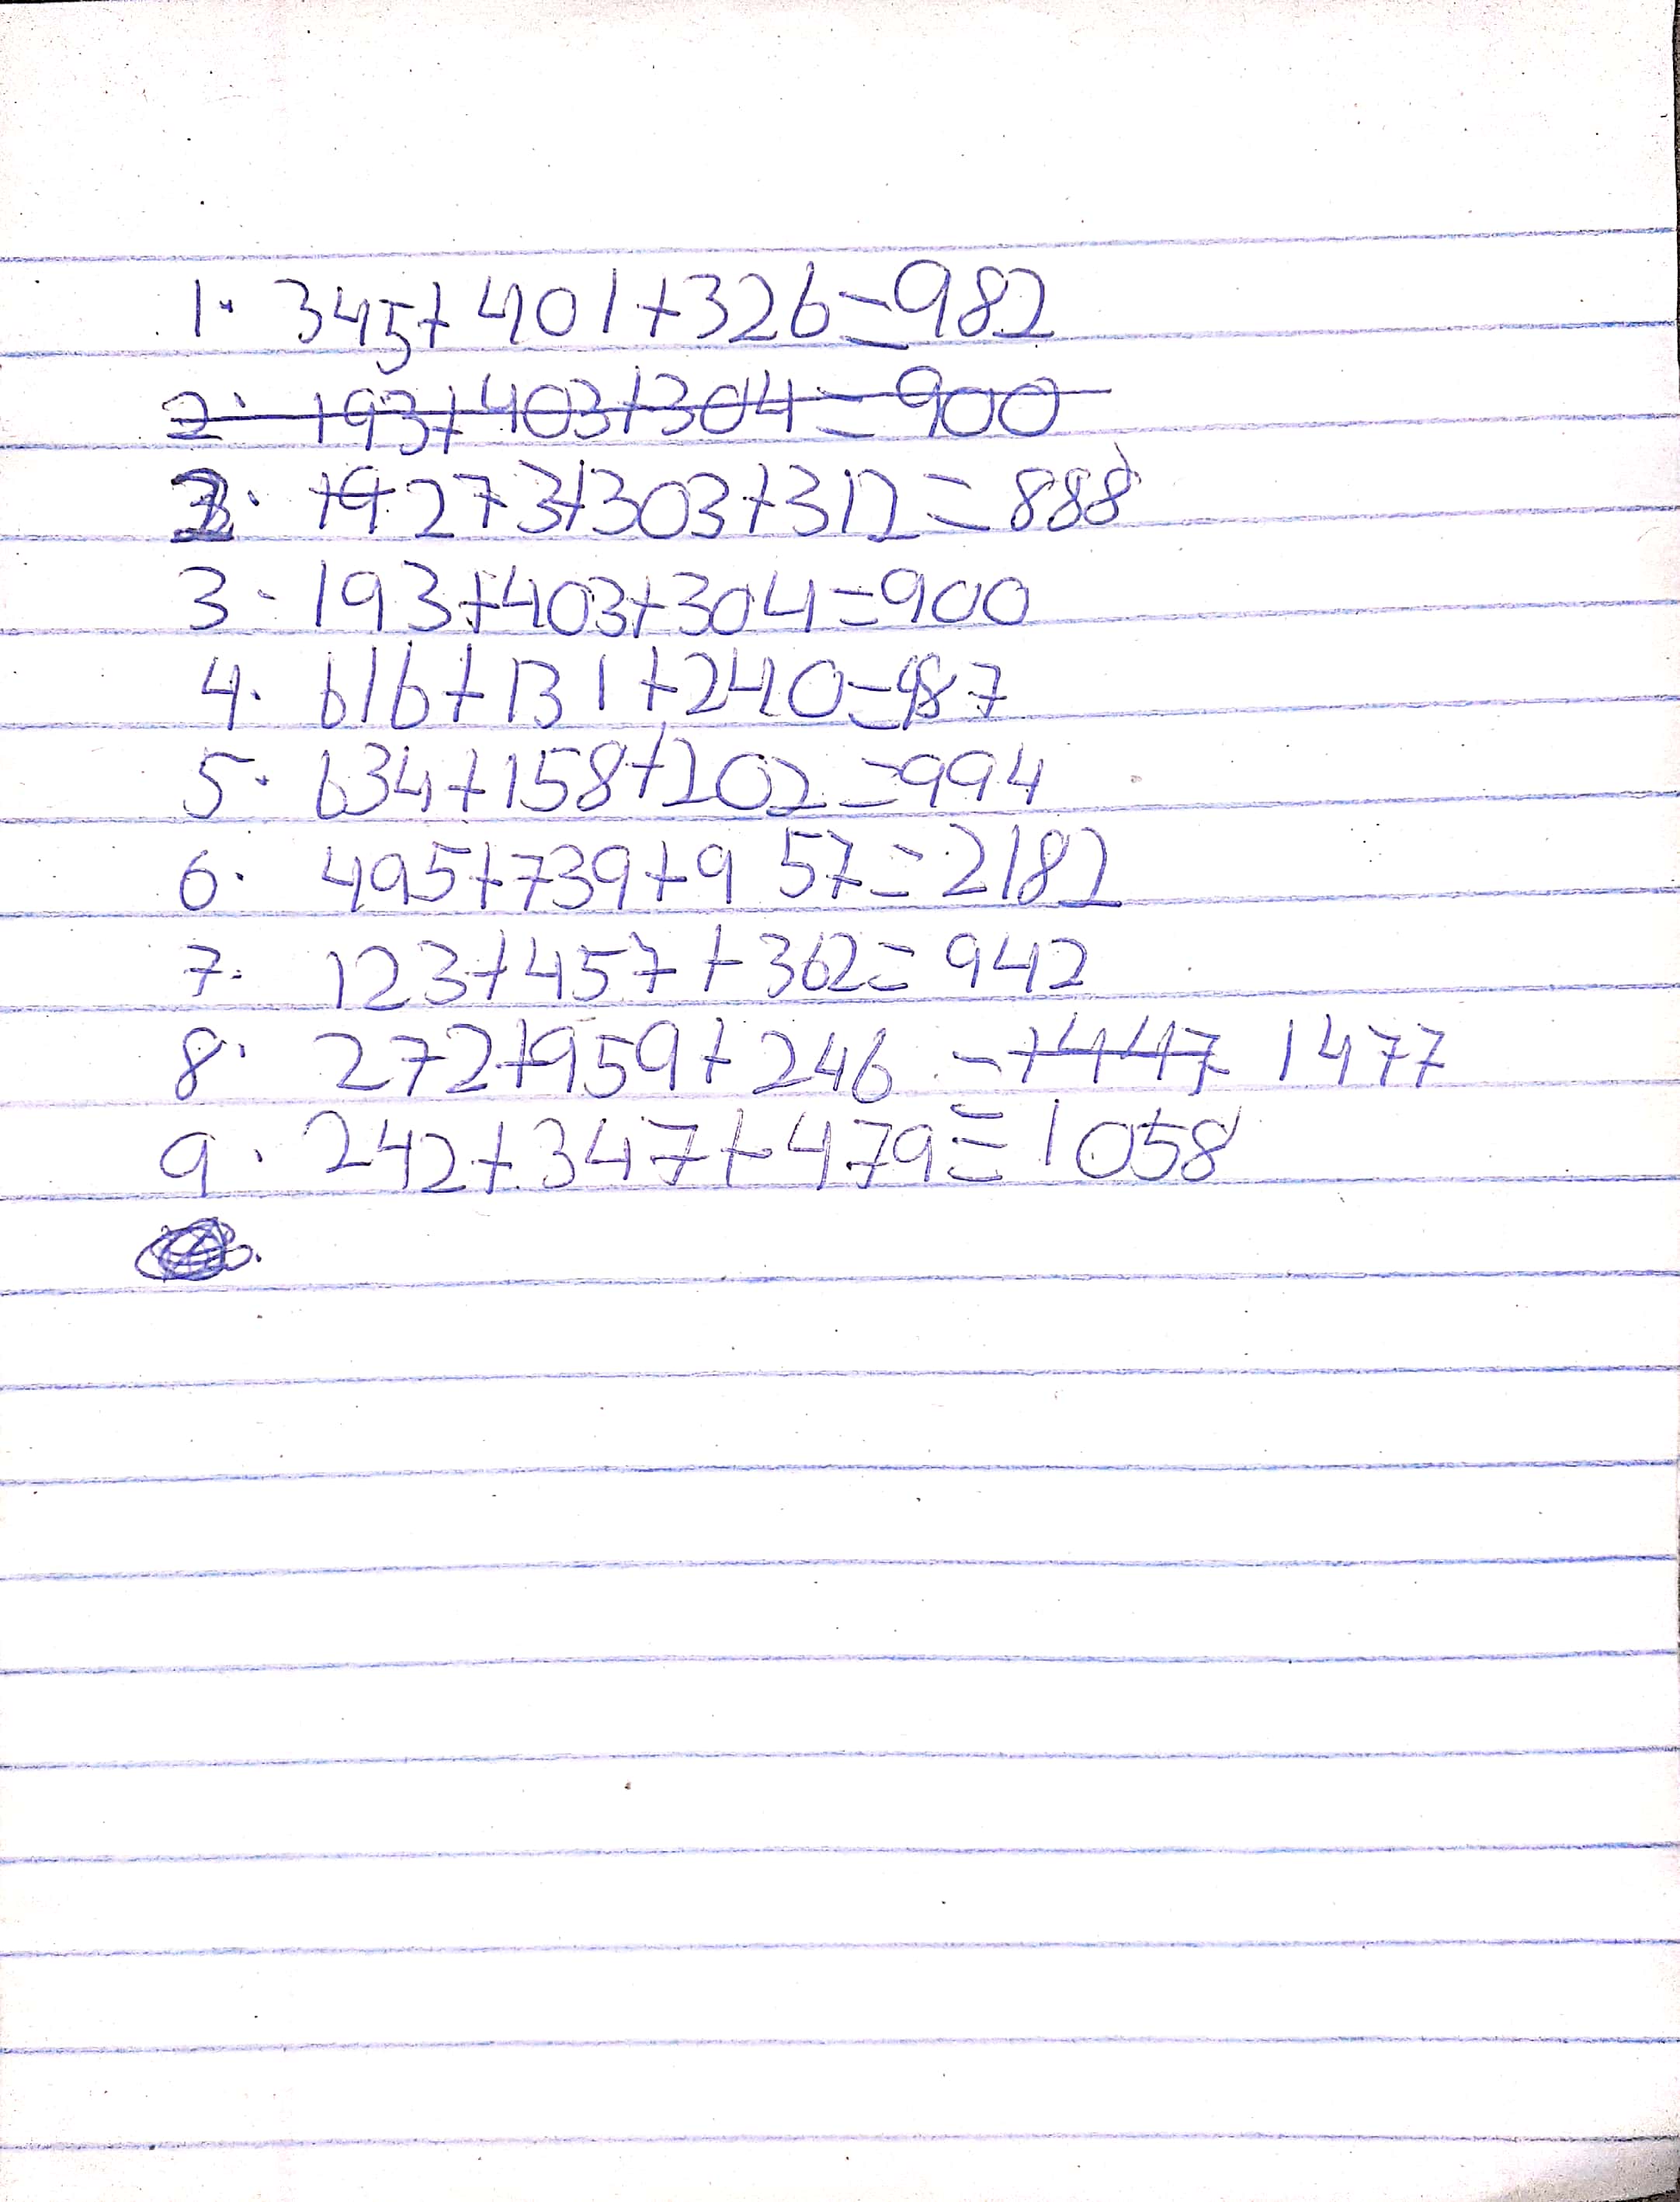 1. 345+401+326=982
2. 193+403+304=900
2. 19 273+303+312=888
3. 193+403+304=900
4. 616+131+240=987
5. 634+158+202=994
6. 495+739+957=2182
7. 123+457+362=942
8. 272+959+246=1447 1477
9. 242+347+479=1058